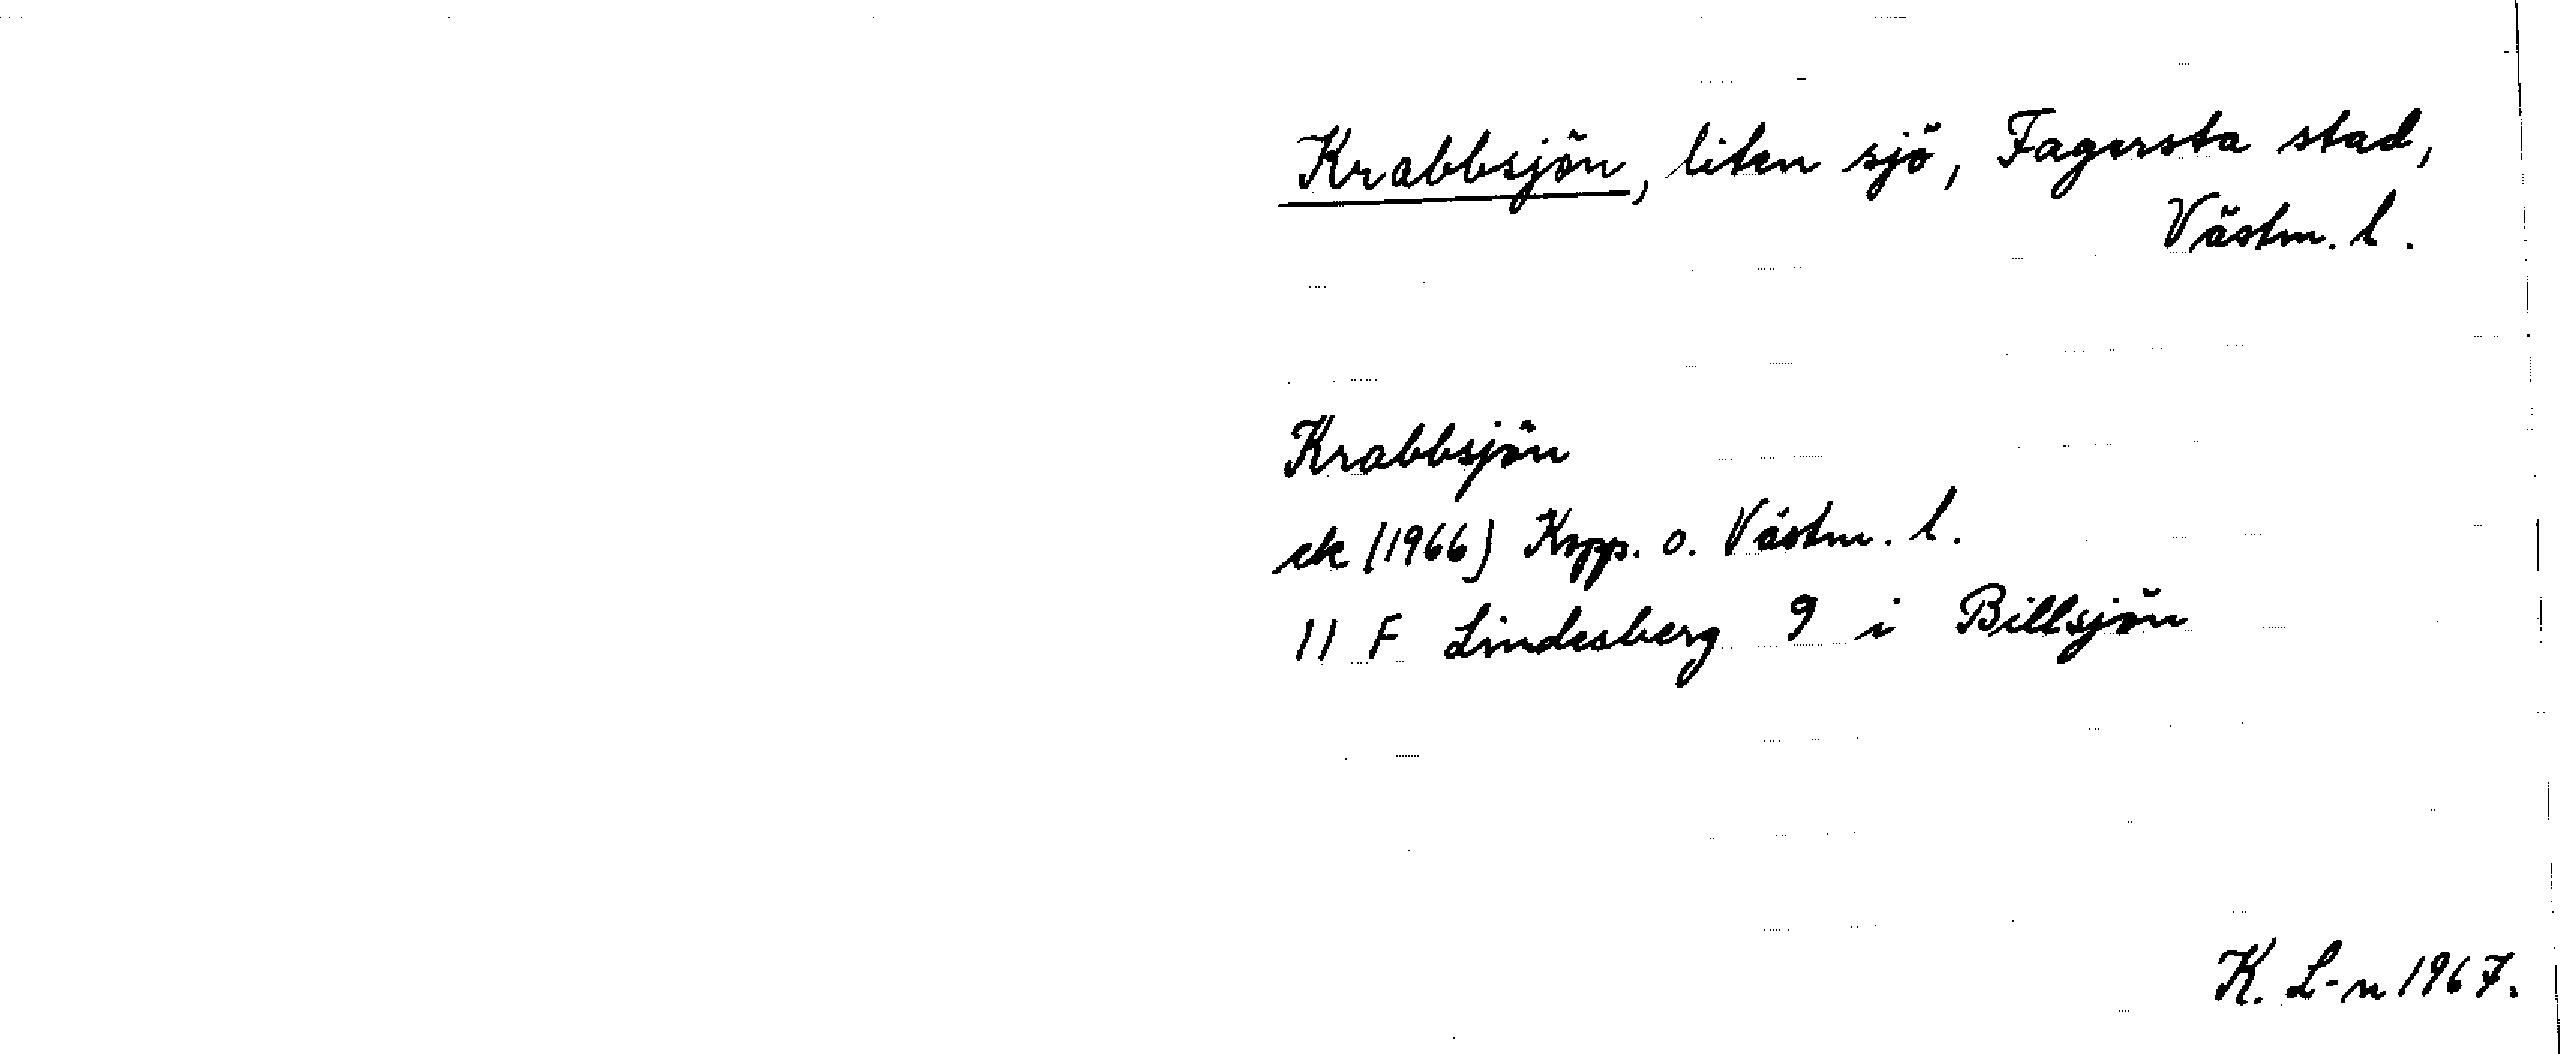 Krabbsjön, liten sjö, Fagersta stad,
Västm. l.
Krabbsjön
ek (1966) Kopp. o. Västm. l.
11 F Lindesberg 9 i Billsjön
K. L-n 1967.